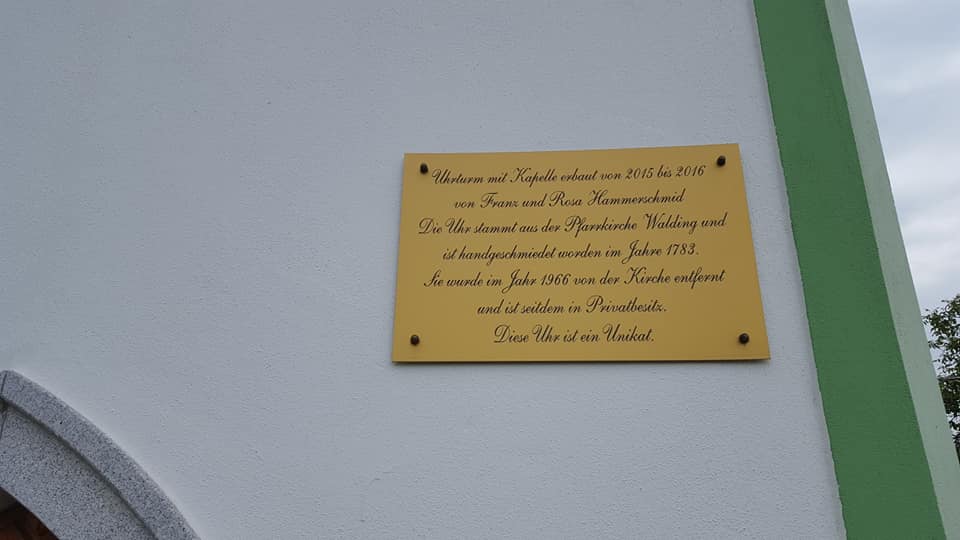 Uhrturm mit Kapelle erbaut von 2015 bis 2016
von Franz und Rosa Hammerschmid
Die Uhr stammt aus der Pfarrkirche Walding und
ist handgeschmiedet worden im Jahre 1783.
Sie wurde im Jahr 1966 von der Kirche entfernt
und ist seitdem in Privatbesitz.
Diese Uhr ist ein Unikat.